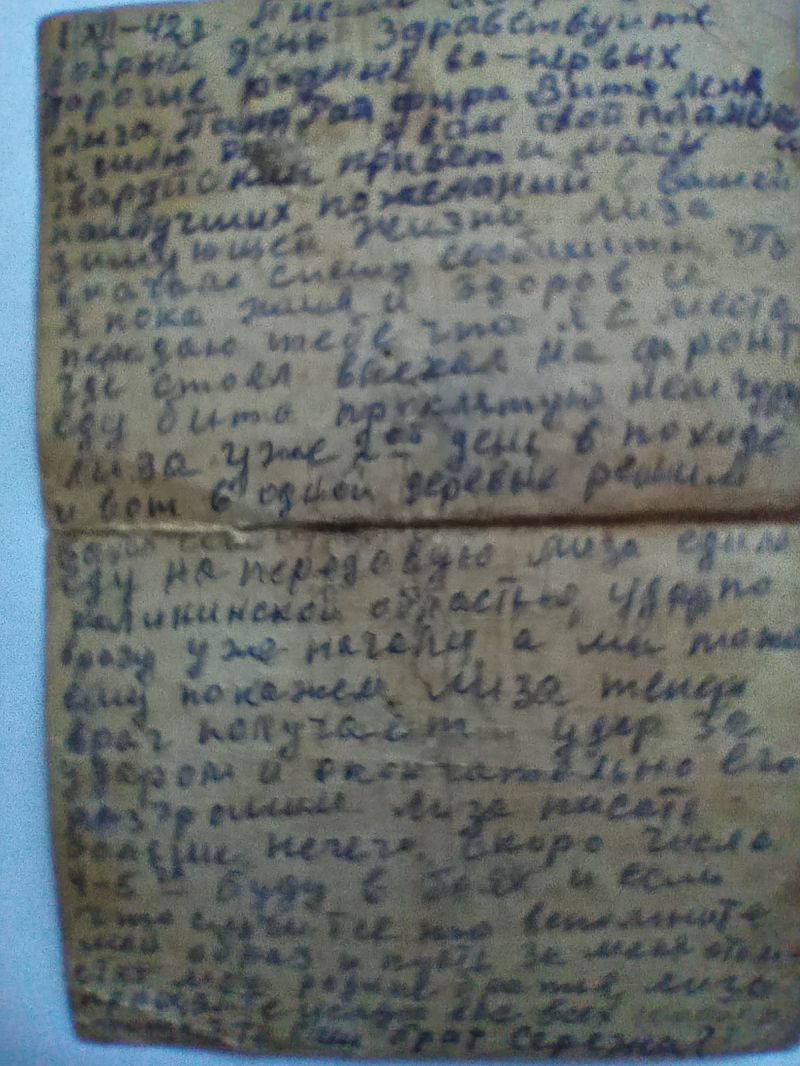 XII-42г. Письмо
добрый день здравствуйте
дорогие родные во-первых
Лиза Таня Рая Фира Витя Леня
и шлю я вам свой пламен
гвардейский привет и масы и
наилучших пожеланий в вашей
жизни Лиза
вначале спешу сообщить что
я пока жив и здоров и
передаю тебе что я с места
где стоял выехал на фронт
еду бить проклятую немчуру
Лиза уже 2ой день в походе
и вот в одной деревне решил
еду на передовую Лиза едим
калининской областью, удар по
врагу уже начали а мы тоже
ему покажем Лиза теперь
враг получает удар за
ударом и окончательно его
разгромим Лиза писать
больше нечего. Скоро числа
4-5 буду в боях и если
что случится то вспомните
мой образ и пусть за меня отом-
стят мои родные братия Лиза
всех
брат Сережа